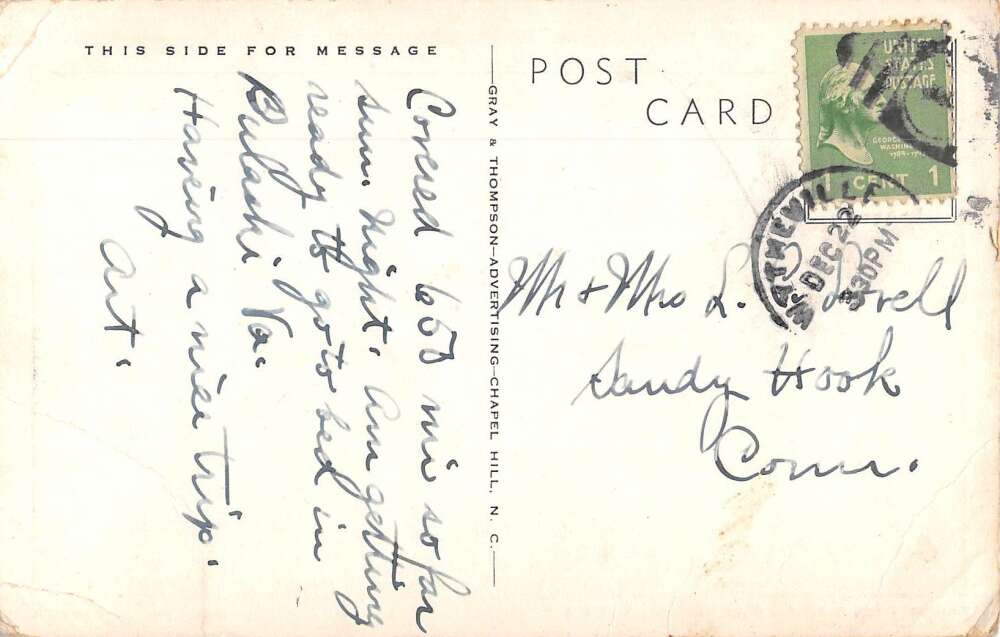 THIS SIDE FOR MESSAGE
Covered 650 mi so far
sun. night. Am getting
ready to go to bed in
Pulaski Va.
Having a nice trip.
Art.
GRAY & THOMPSON—ADVERTISING—CHAPEL HILL, N. C.
POST
CARD
UNITED
STATES
POSTAGE
GEORGE
WASHINGTON
1 CENT 1
WYTHEVILLE
DEC 22
330PM
Mr + Mrs L.
Sandy Hook
Conn.